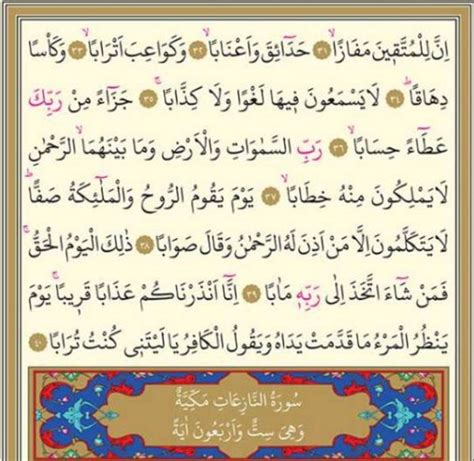 اِنَّ لِلْمُتَّقٖينَ مَفَازًاۙ ﴿٣١﴾ حَدَٓائِقَ وَاَعْنَابًاۙ ﴿٣٢﴾ وَكَوَاعِبَ اَتْرَابًاۙ ﴿٣٣﴾ وَكَأْسًا
دِهَاقًاۜ ﴿٣٤﴾ لَا يَسْمَعُونَ فٖيهَا لَغْوًا وَلَا كِذَّابًاۚ ﴿٣٥﴾ جَزَٓاءً مِنْ رَبِّكَ
عَطَٓاءً حِسَابًاۙ ﴿٣٦﴾ رَبِّ السَّمٰوَاتِ وَالْاَرْضِ وَمَا بَيْنَهُمَا الرَّحْمٰنِ
لَا يَمْلِكُونَ مِنْهُ خِطَابًاۙ ﴿٣٧﴾ يَوْمَ يَقُومُ الرُّوحُ وَالْمَلٰٓئِكَةُ صَفًّاۙ
لَا يَتَكَلَّمُونَ اِلَّا مَنْ اَذِنَ لَهُ الرَّحْمٰنُ وَقَالَ صَوَابًا ﴿٣٨﴾ ذٰلِكَ الْيَوْمُ الْحَقُّۚ
فَمَنْ شَٓاءَ اتَّخَذَ اِلٰى رَبِّهٖ مَاٰبًا ﴿٣٩﴾ اِنَّٓا اَنْذَرْنَاكُمْ عَذَابًا قَرٖيبًاۚ يَوْمَ
يَنْظُرُ الْمَرْءُ مَا قَدَّمَتْ يَدَاهُ وَيَقُولُ الْكَافِرُ يَا لَيْتَنٖي كُنْتُ تُرَابًا ﴿٤٠﴾
سُورَةُ النَّازِعَاتِ مَكِّيَّةٌ
وَهِيَ سِتٌّ وَاَرْبَعُونَ اٰيَةً